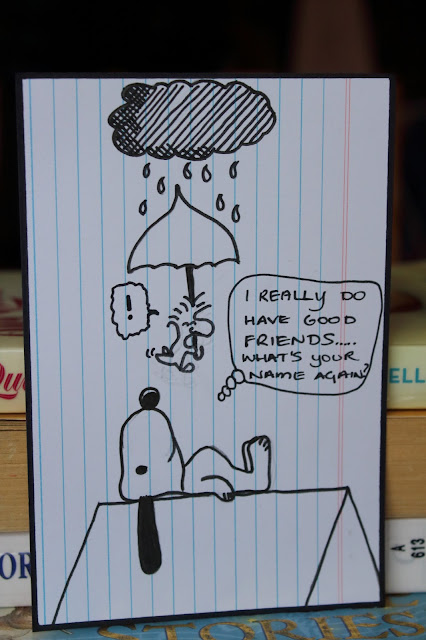 !
I REALLY DO
HAVE GOOD
FRIENDS....
WHAT'S YOUR
NAME AGAIN?
ELL
A
613
OR
STORIES